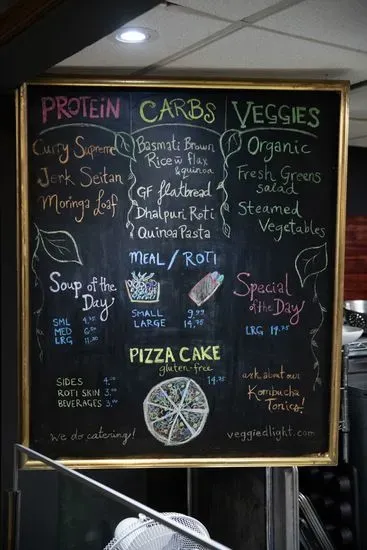 PROTEIN
Curry Supreme
Jerk Seitan
Moringa Loaf
CARBS
Basmati Brown
Rice w Flax
& quinoa
GF flatbread
Dhalpuri Roti
Quinoa Pasta
VEGGIES
Organic
Fresh Greens
salad
Steamed
Vegetables
Soup of the
Day
SML 4.75
MED 6.50
LRG 11.20
MEAL / ROTI
SMALL 9.99
LARGE 14.75
Special
of the Day
LRG 14.75
PIZZA CAKE
gluten-free
14.75
SIDES 4.00
ROTI SKIN 3.00
BEVERAGES 3.00
ask about our
Kombucha
Tonics!
We do catering!
veggiedlight.com